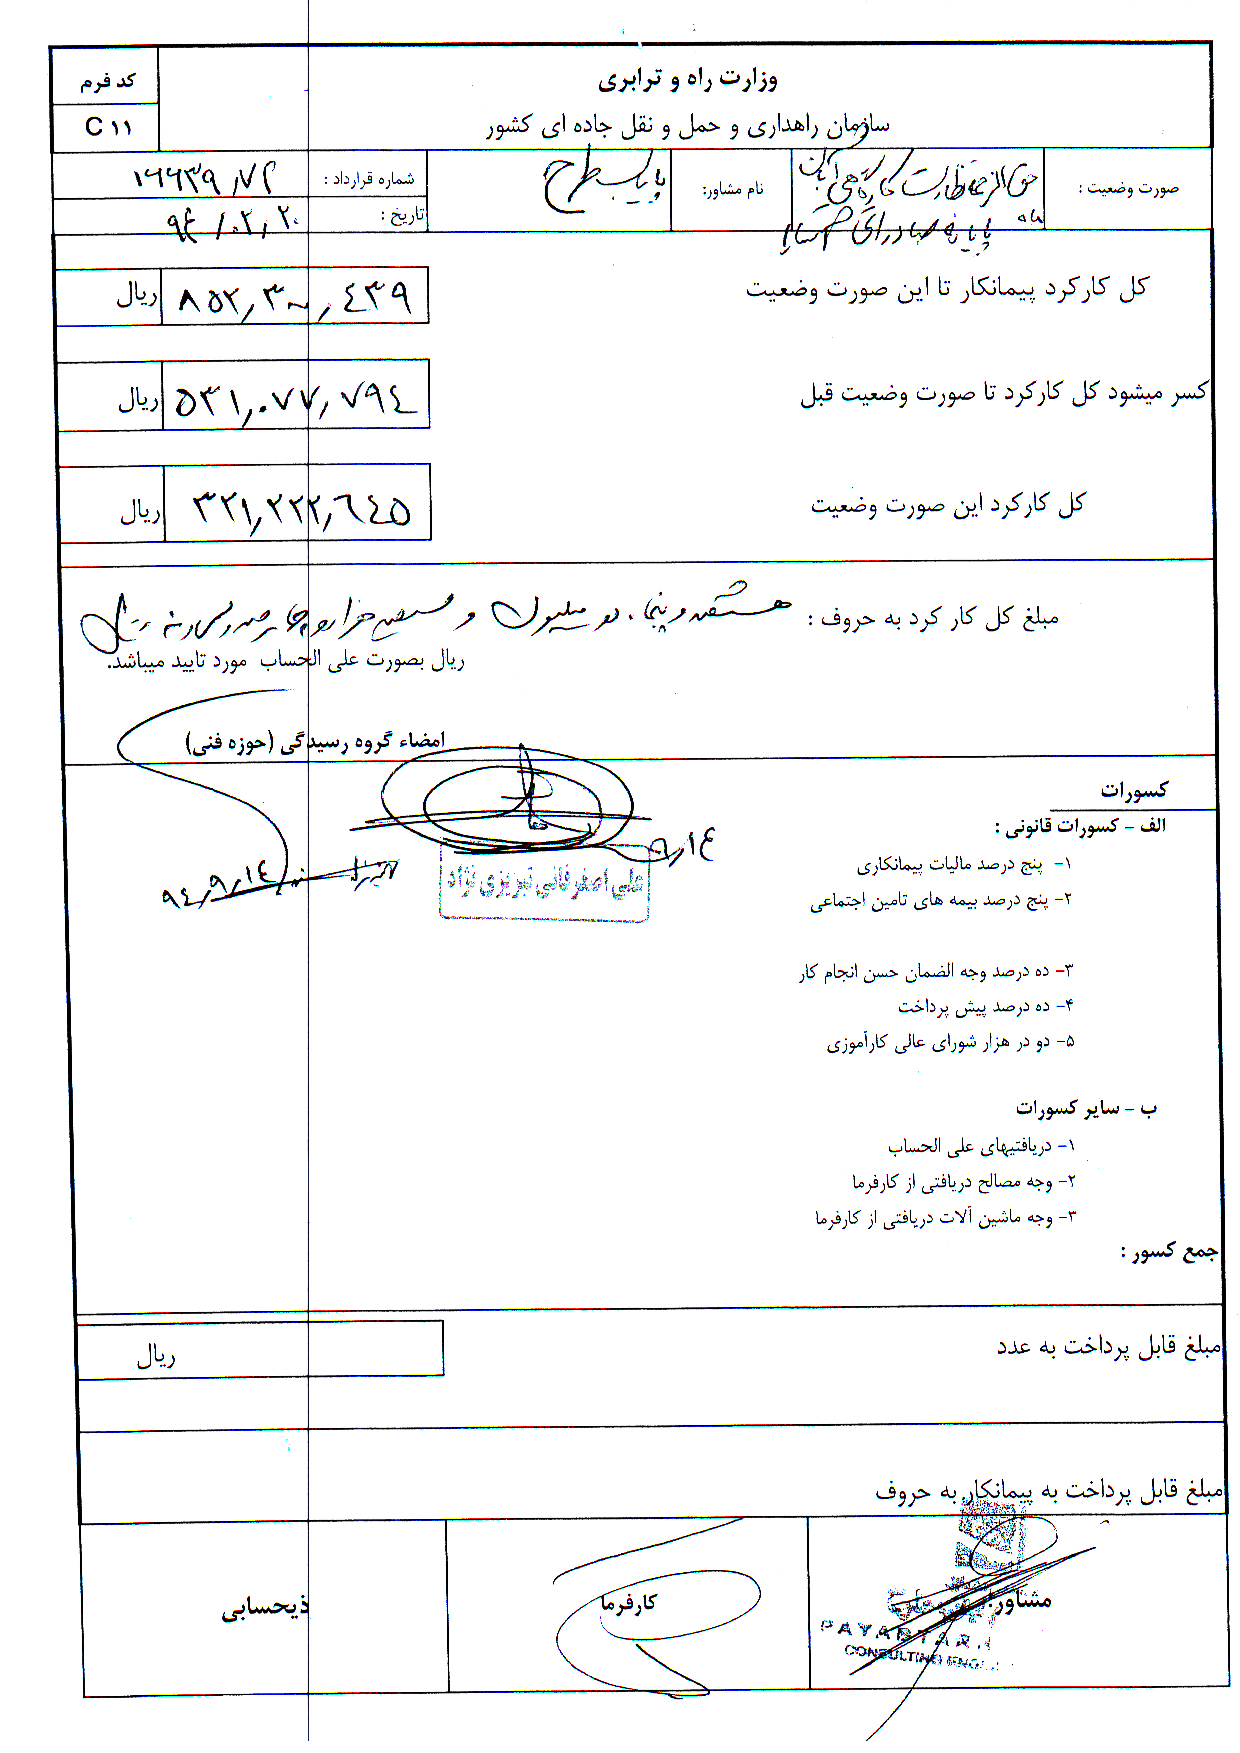 وزارت راه و ترابری
سازمان راهداری و حمل و نقل جاده ای کشور
کد فرم
C ۱۱
صورت وضعیت :
نام مشاور:
شماره قرارداد :
تاریخ : ۹٤/۰۲/۲۰
کل کارکرد پیمانکار تا این صورت وضعیت ۸۵۲,۳۰۰,٤۳۹ ریال
کسر میشود کل کارکرد تا صورت وضعیت قبل ۵۳۱,۰۷۷,۷۹٤ ریال
کل کارکرد این صورت وضعیت ۳۲۱,۲۲۲,٦٤۵ ریال
مبلغ کل کار کرد به حروف : هشتصد و پنجاه دو میلیون و سیصد هزار و چهارصد و سی و نه ریال
ریال بصورت علی الحساب مورد تایید میباشد.
امضاء گروه رسیدگی (حوزه فنی)
۹/۱٤
علی اصغر فانی تبریزی نژاد
۹٤/۹/۱٤
کسورات
الف - کسورات قانونی :
۱- پنج درصد مالیات پیمانکاری
۲- پنج درصد بیمه های تامین اجتماعی
۳- ده درصد وجه الضمان حسن انجام کار
۴- ده درصد پیش پرداخت
۵- دو در هزار شورای عالی کارآموزی
ب - سایر کسورات
۱- دریافتیهای علی الحساب
۲- وجه مصالح دریافتی از کارفرما
۳- وجه ماشین آلات دریافتی از کارفرما
جمع کسور :
مبلغ قابل پرداخت به عدد ریال
مبلغ قابل پرداخت به پیمانکار به حروف
مشاور:
کارفرما
ذیحسابی
CONSULTING